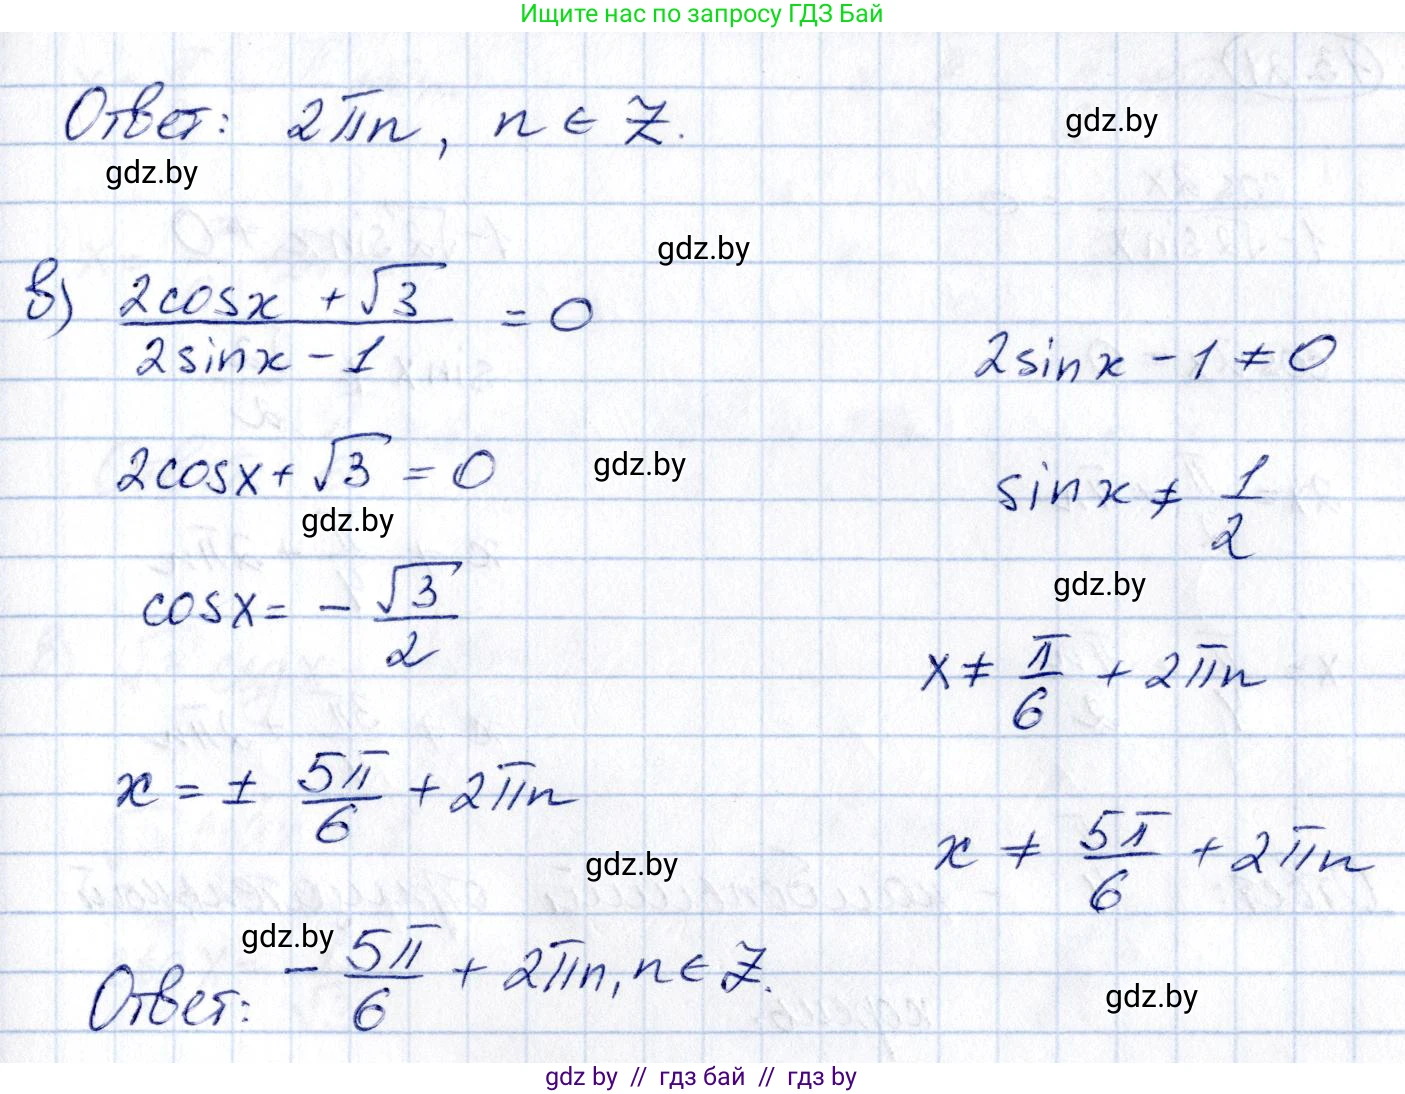 Ищите нас по запросу ГДЗ Бай
Ответ: 2πn, n ∈ Z.
gdz.by
gdz.by
gdz.by
в) (2cosx + √3)/(2sinx - 1) = 0
2sinx - 1 ≠ 0
2cosx + √3 = 0
gdz.by
sinx ≠ 1/2
gdz.by
cosx = - √3/2
gdz.by
x ≠ π/6 + 2πn
x = ± 5π/6 + 2πn
x ≠ 5π/6 + 2πn
gdz.by
gdz.by
Ответ: - 5π/6 + 2πn, n ∈ Z.
gdz.by
gdz by // гдз бай // гдз by